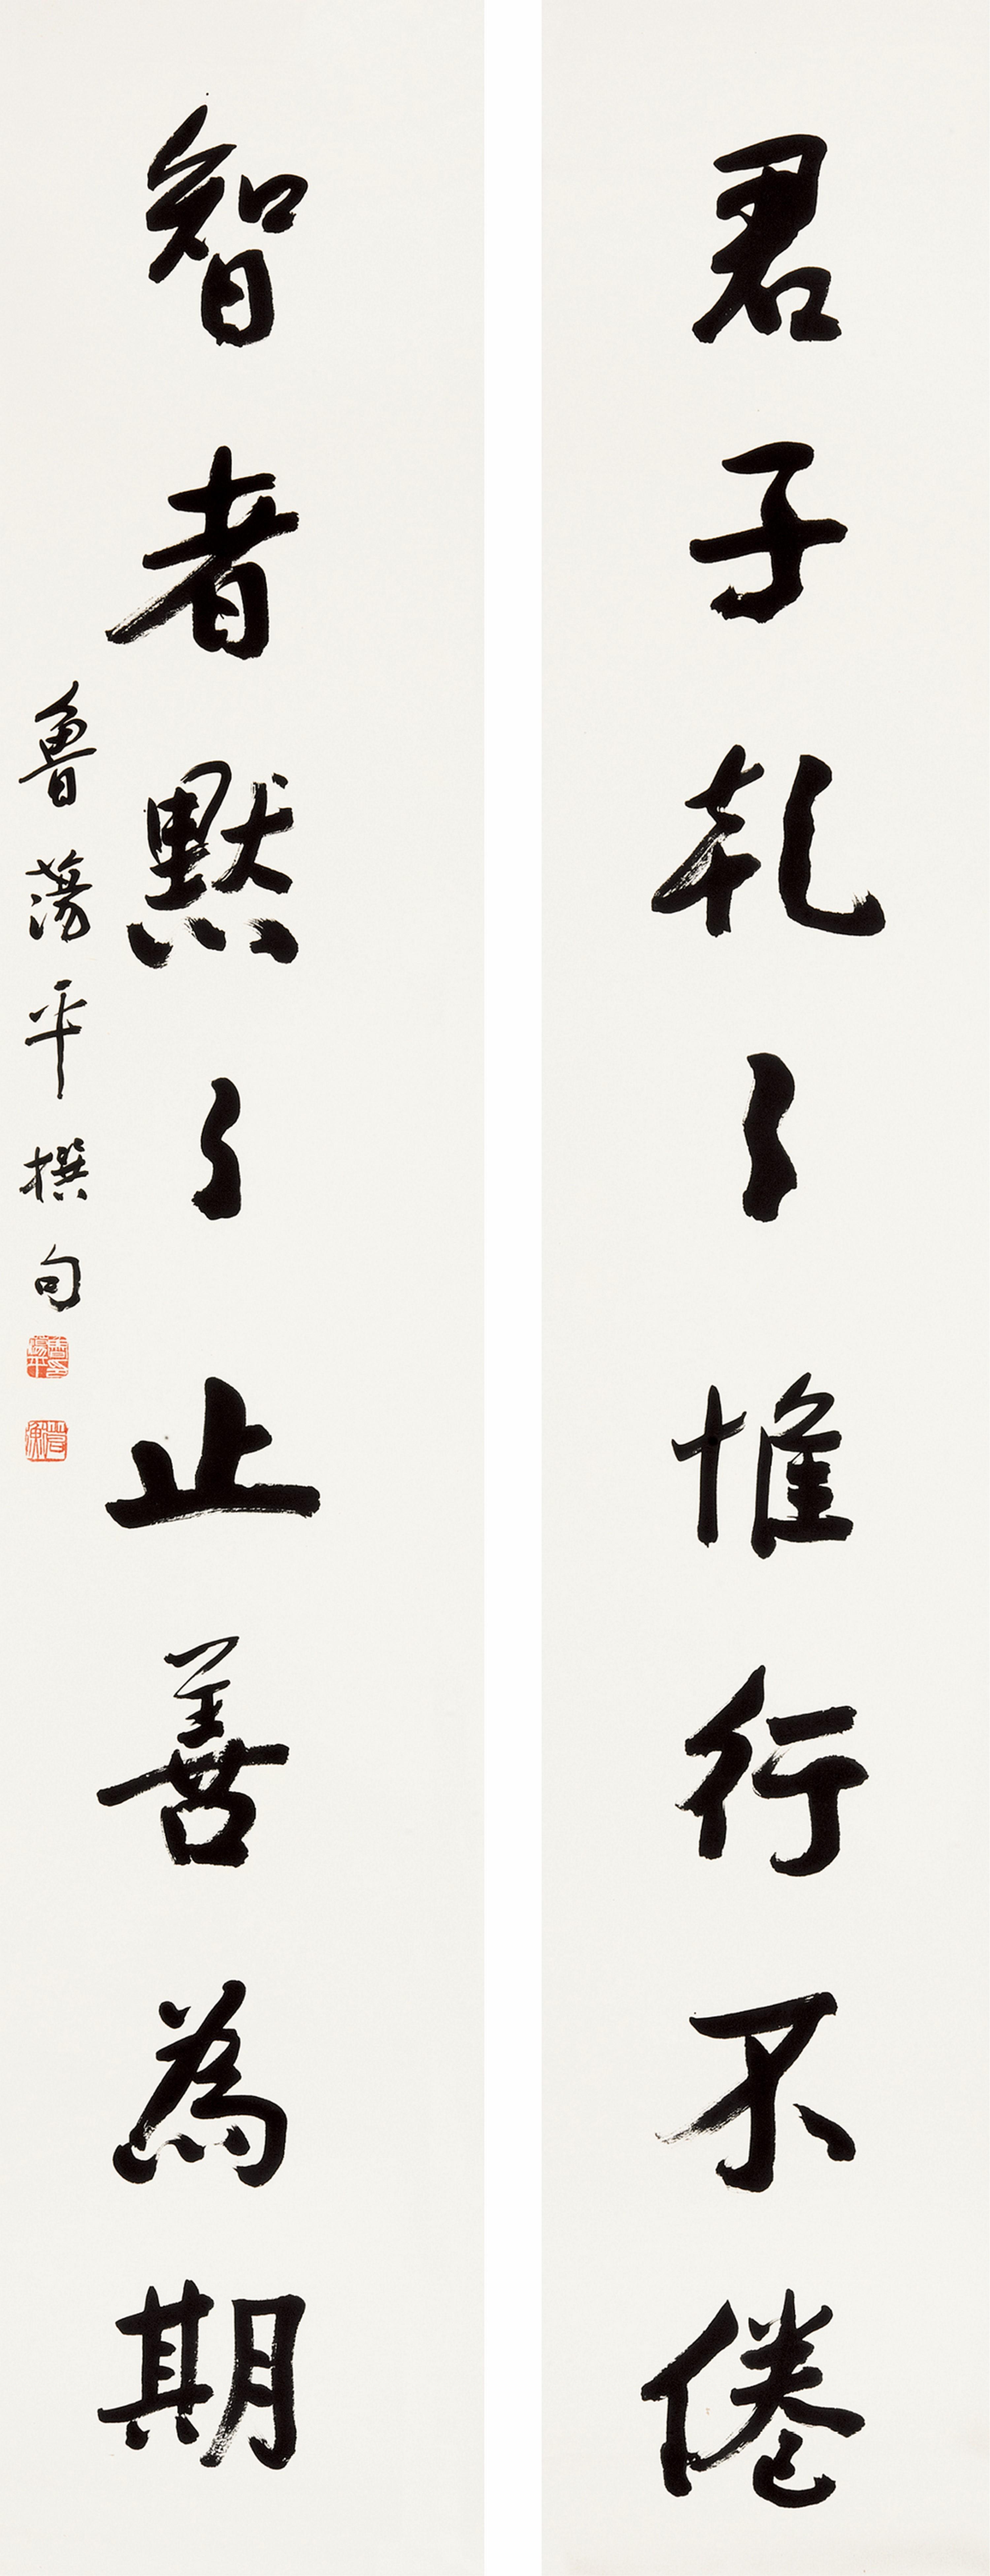 君子乾〻惟行不倦
智者默〻止善為期
魯蕩平撰句